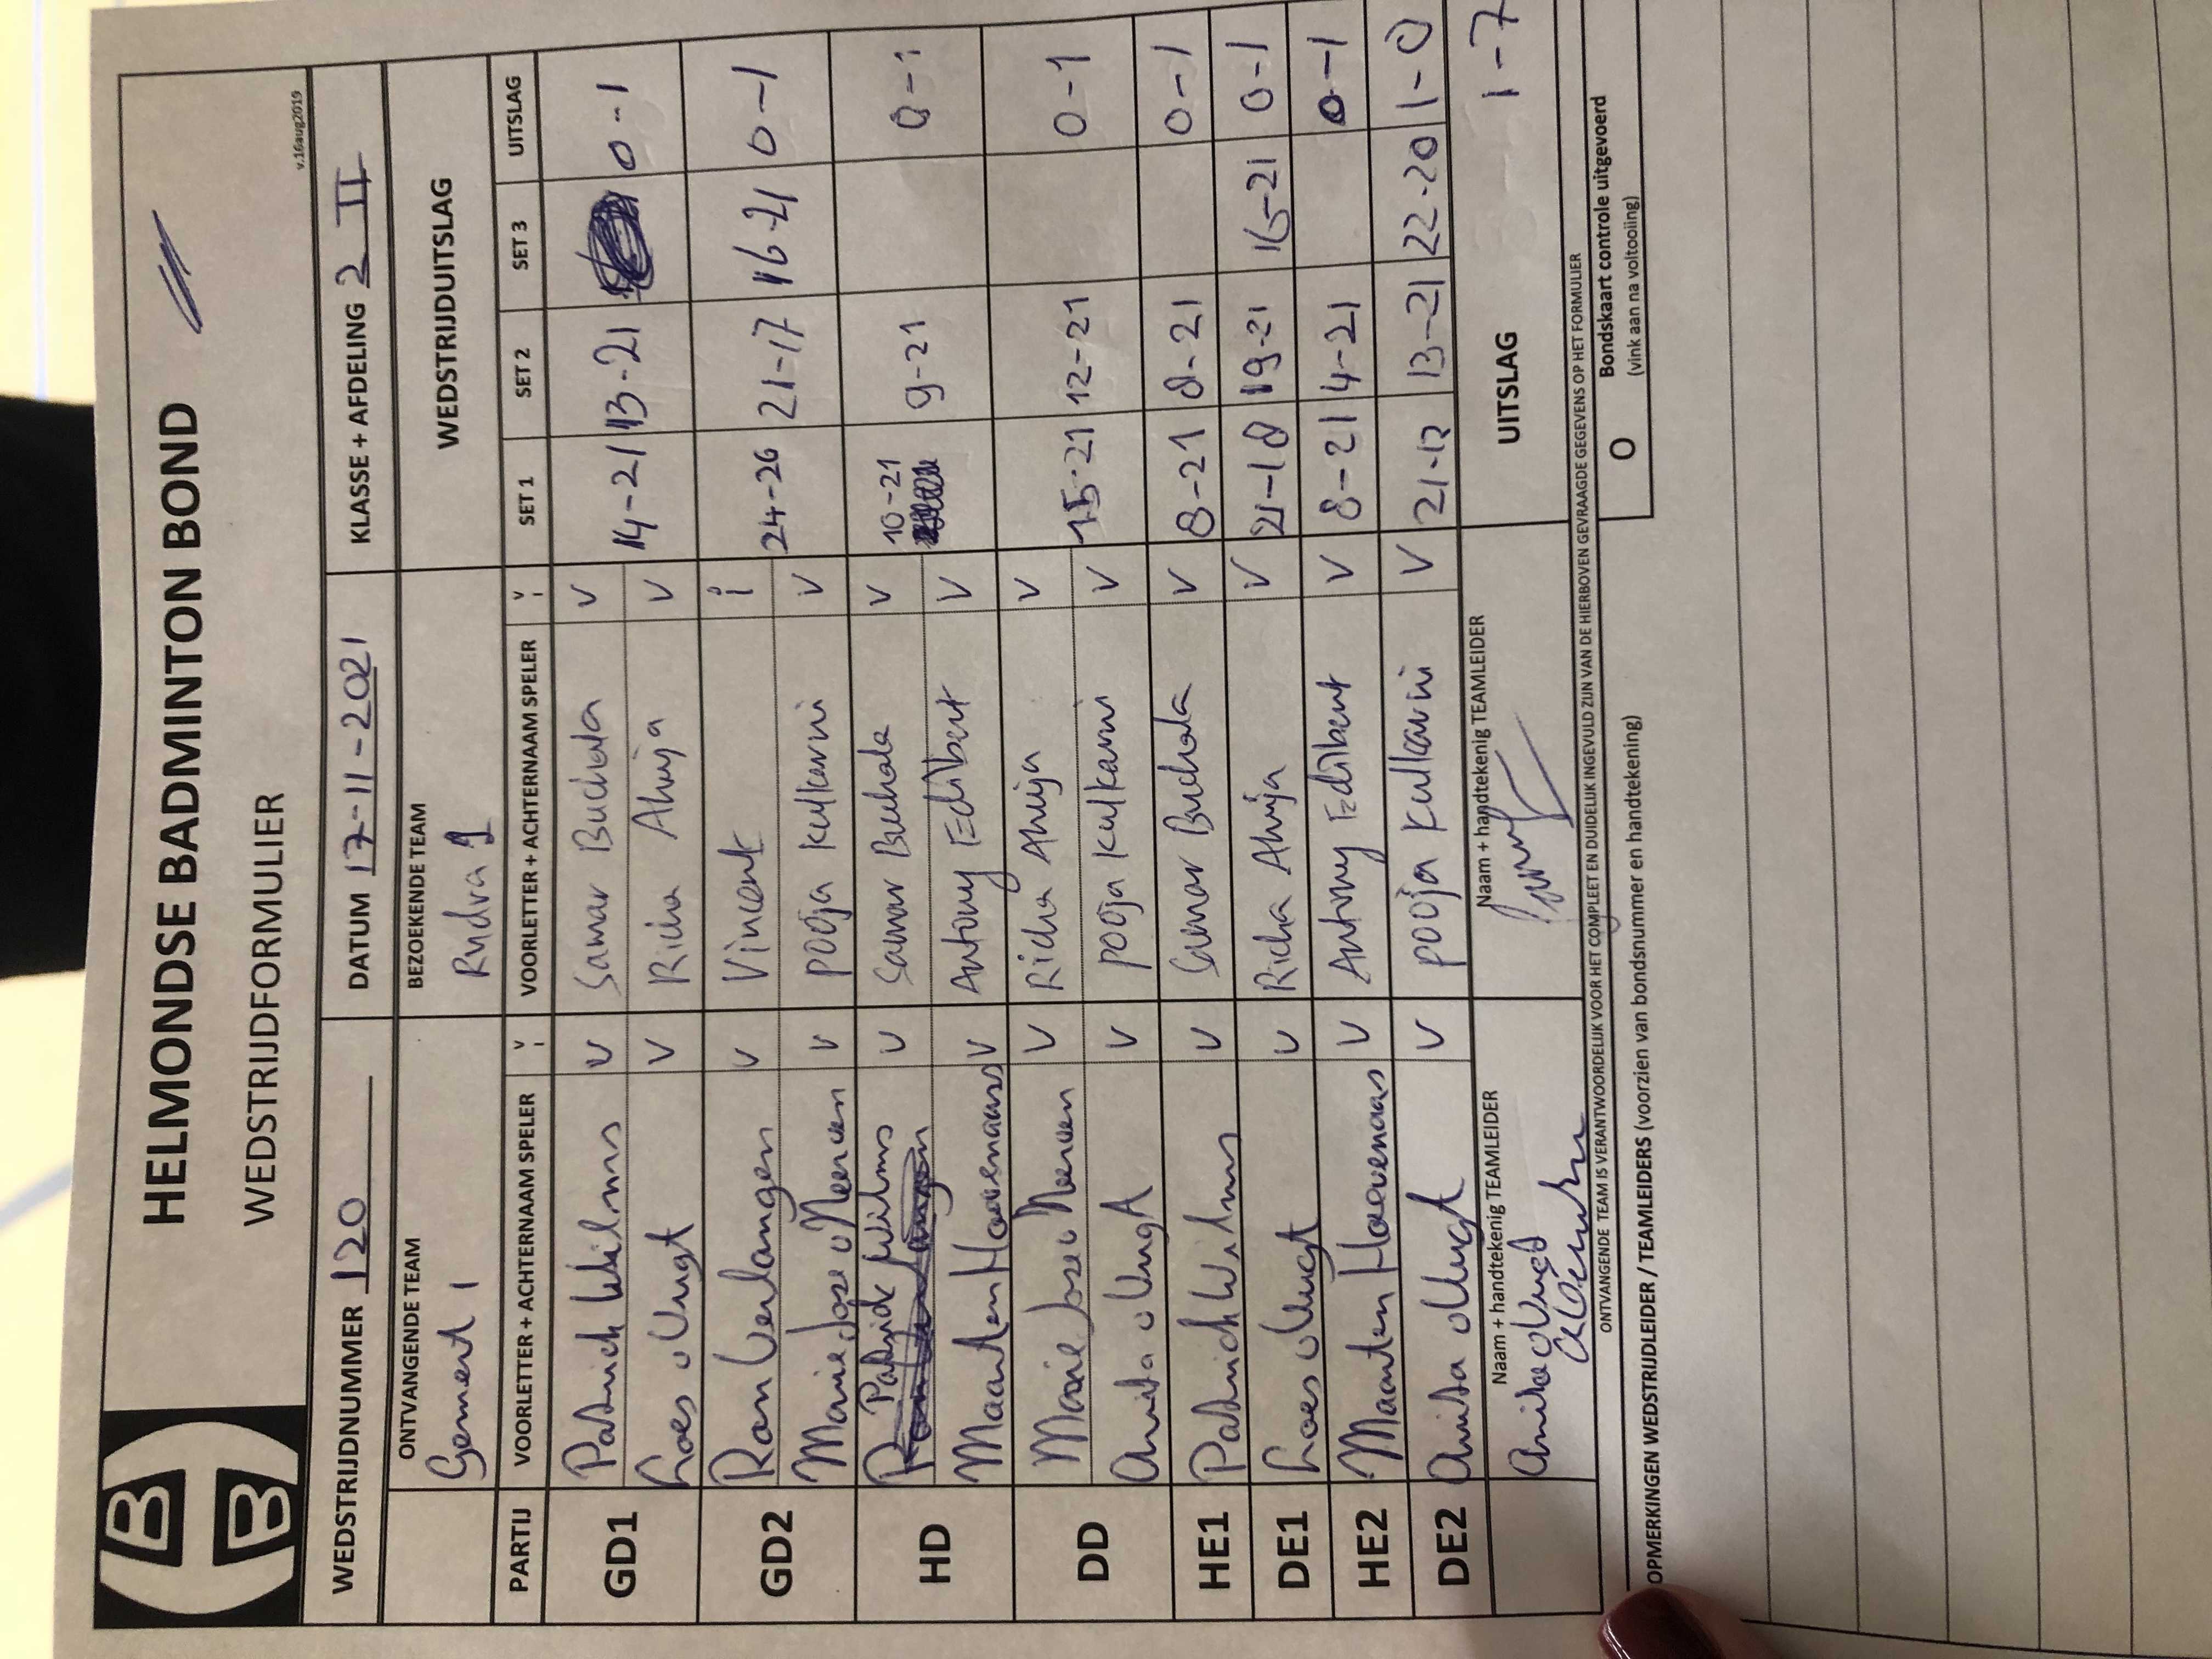 HELMONDSE BADMINTON BOND
WEDSTRIJDFORMULIER
v.16aug2019
WEDSTRIJDNUMMER 120 DATUM 17-11-2021 KLASSE + AFDELING 2 II
ONTVANGENDE TEAM BEZOEKENDE TEAM WEDSTRIJDUITSLAG
Gemert 1 Rudra 1
PARTIJ VOORLETTER + ACHTERNAAM SPELER V VOORLETTER + ACHTERNAAM SPELER V SET 1 SET 2 SET 3 UITSLAG
GD1 Patrick Wilms V Samar Buchala V 14-21 13-21 0-1
Loes v Vugt V Richa Ahuja V
GD2 Ron Verlangen V Vincent i 24-26 21-17 16-21 0-1
Marie-Jose v Meerven V pooja kulkarni V
HD Patrick Wilms V Samar Buchala V 10-21 9-21 0-1
Maarten Hoevenaars V Antony Edilbert V
DD Marie Jose v Meerven V Richa Ahuja V 15-21 12-21 0-1
Anita v Vugt V pooja kulkarni V
HE1 Patrick Wilms V Samar Buchala V 8-21 8-21 0-1
DE1 Loes v Vugt V Richa Ahuja V 21-18 19-21 16-21 0-1
HE2 Maarten Hoevenaars V Antony Edilbert V 8-21 4-21 0-1
DE2 Anita v Vugt V pooja kulkarni V 21-12 13-21 22-20 1-0
Naam + handtekenig TEAMLEIDER Naam + handtekenig TEAMLEIDER UITSLAG 1-7
Anita v Vugt
ONTVANGENDE TEAM IS VERANTWOORDELIJK VOOR HET COMPLEET EN DUIDELIJK INGEVULD ZIJN VAN DE HIERBOVEN GEVRAAGDE GEGEVENS OP HET FORMULIER
OPMERKINGEN WEDSTRIJDLEIDER / TEAMLEIDERS (voorzien van bondsnummer en handtekening)
O Bondskaart controle uitgevoerd
(vink aan na voltooiing)